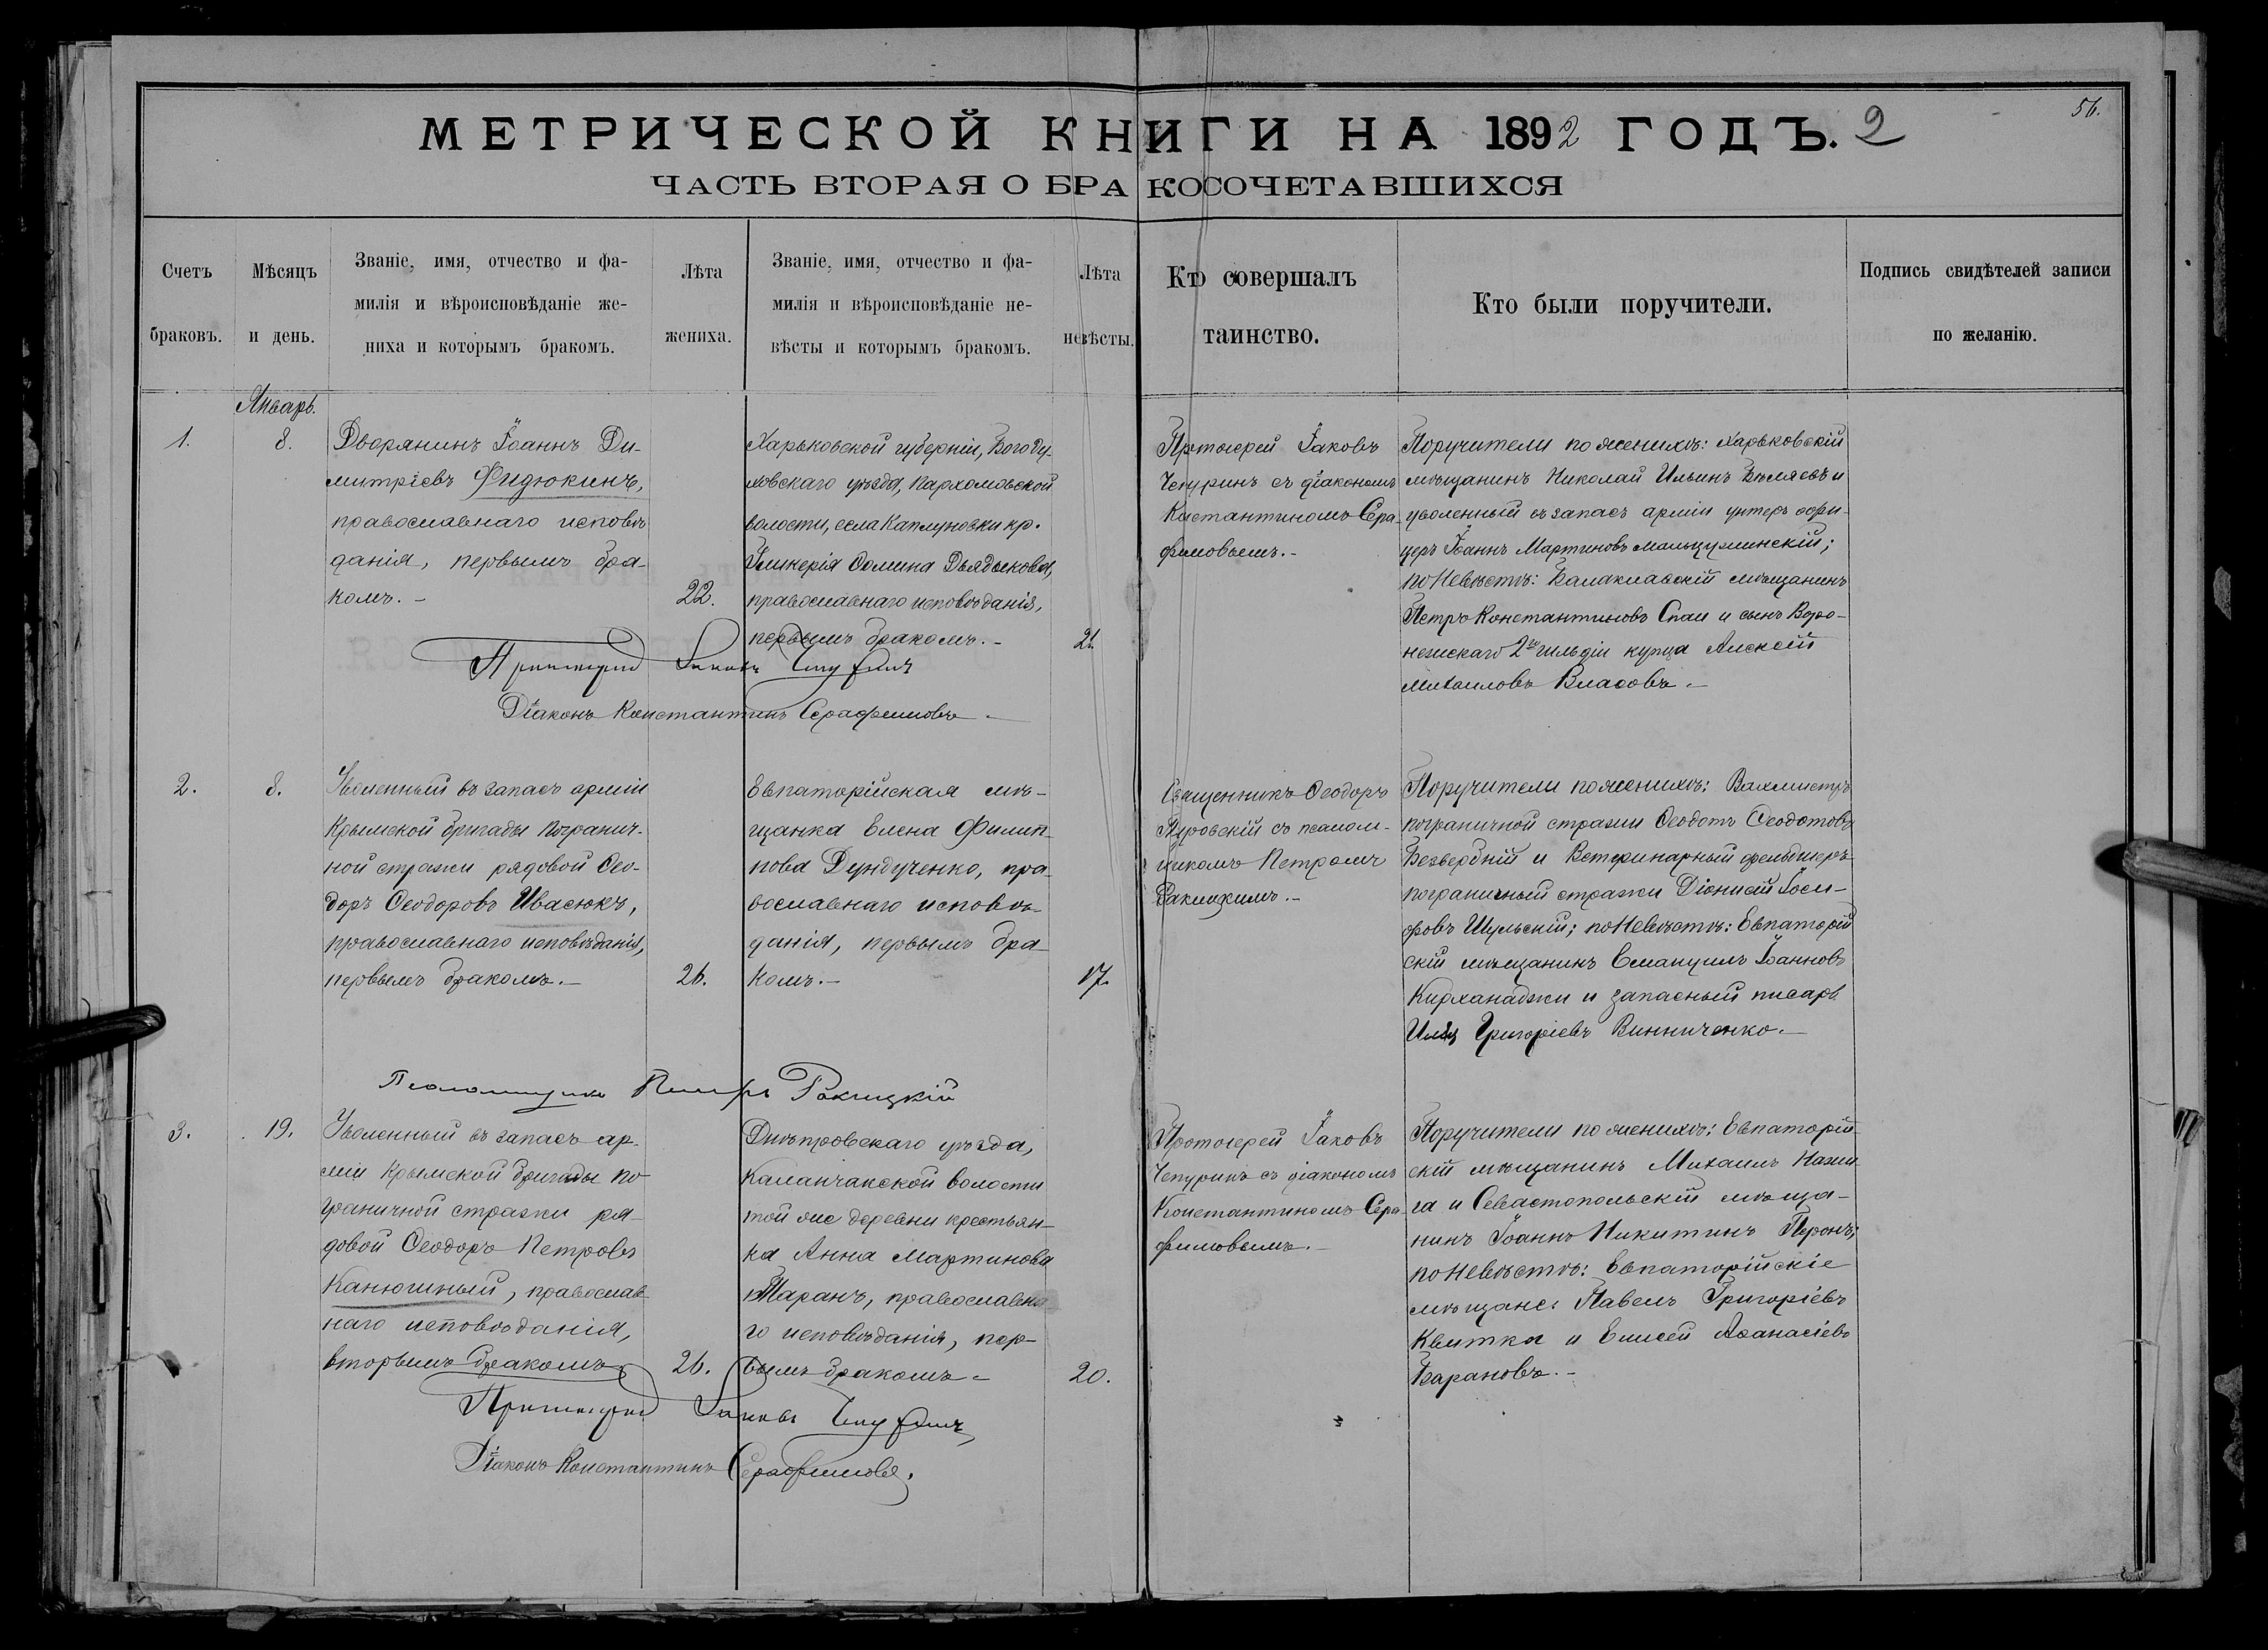 56.
МЕТРИЧЕСКОЙ КНИГИ НА 1892 ГОДЪ. 2
ЧАСТЬ ВТОРАЯ О БРАКОСОЧЕТАВШИХСЯ
Счетъ
браковъ.
Мѣсяцъ
и день.
Званіе, имя, отчество и фа-
милія и вѣроисповѣданіе же-
ниха и которымъ бракомъ.
Лѣта
жениха.
Званіе, имя, отчество и фа-
милія и вѣроисповѣданіе не-
вѣсты и которымъ бракомъ.
Лѣта
невѣсты.
Кто совершалъ
таинство.
Кто были поручители.
Подпись свидѣтелей записи
по желанію.
Январь.
1.
8.
Дворянинъ Іоаннъ Ди-
митріевъ Фидюкинъ,
православнаго исповѣ
данія, первымъ бра-
комъ.-
22.
Харьковской губерніи, Богоду-
ховскаго уѣзда, Пархомовской
волости, села Каплуновки кр.
Гликерія Ѳомина Дьядькова,
православнаго исповѣданія,
первымъ бракомъ.-
21.
Протоіерей Іаковъ
Чепуринъ съ діакономъ
Константиномъ Сера-
фимовымъ.-
Поручители по женихѣ: Харьковскій
мѣщанинъ Николай Ильинъ Бѣляевъ и
уволенный въ запасъ арміи унтеръ офи-
церъ Іоаннъ Мартиновъ
по невѣстѣ: Балаклавскій мѣщанинъ
Петръ Константиновъ Спаи и сынъ Воро-
нежскаго 2й гильдіи купца Алексѣй
Михаиловъ Власовъ.-
Протоіерей Іаковъ Чепуринъ
Діаконъ Константинъ Серафимовъ.
2.
8.
Уволенный въ запасъ арміи
Крымской бригады погранич-
ной стражи рядовой Ѳео-
доръ Ѳеодоровъ Ивасюкъ,
православнаго исповѣданія,
первымъ бракомъ.-
26.
Евпаторійская мѣ-
щанка Елена Филип-
пова Дундученко, пра-
вославнаго исповѣ-
данія, первымъ бра-
комъ.-
17.
Священникъ Ѳеодоръ
съ псалом-
щикомъ Петромъ
Ракицкимъ.-
Поручители по женихѣ: Вахмистръ
пограничной стражи Ѳеодотъ Ѳеодотовъ
Безвербній и Ветеринарный фельдшеръ
пограничный стражи Діонисій Іоси-
фовъ Шульскій; по невѣстѣ: Евпаторій
скій мѣщанинъ Емануилъ Іоанновъ
Кирханаджи и запасный писарь
Илья Григоріевъ Винниченко.-
Псаломщикъ Петръ Ракицкій
3.
19.
Уволенный въ запасъ ар-
міи Крымской бригады по
граничной стражи ря-
довой Ѳеодоръ Петровъ
Канюшный, православ
наго исповѣданія,
вторымъ бракомъ
26.
Днѣпровскаго уѣзда,
Каланчакской волости
той же деревни крестьян-
ка Анна Мартинова
Таранъ, православна
го исповѣданія, пер-
вымъ бракомъ-
20.
Протоіерей Іаковъ
Чепуринъ съ діакономъ
Константиномъ Сера-
фимовымъ.-
Поручители по женихѣ: Евпаторій-
скій мѣщанинъ Михаилъ
га и Севастопольскій мѣща-
нинъ Іоаннъ Никитинъ Перонъ;
по невѣстѣ: Евпаторійскіе
мѣщане: Павелъ Григоріевъ
Квитка и Елисей Аѳанасіевъ
Барановъ.-
Протоіерей Іаковъ Чепуринъ
Діаконъ Константинъ Серафимовъ.